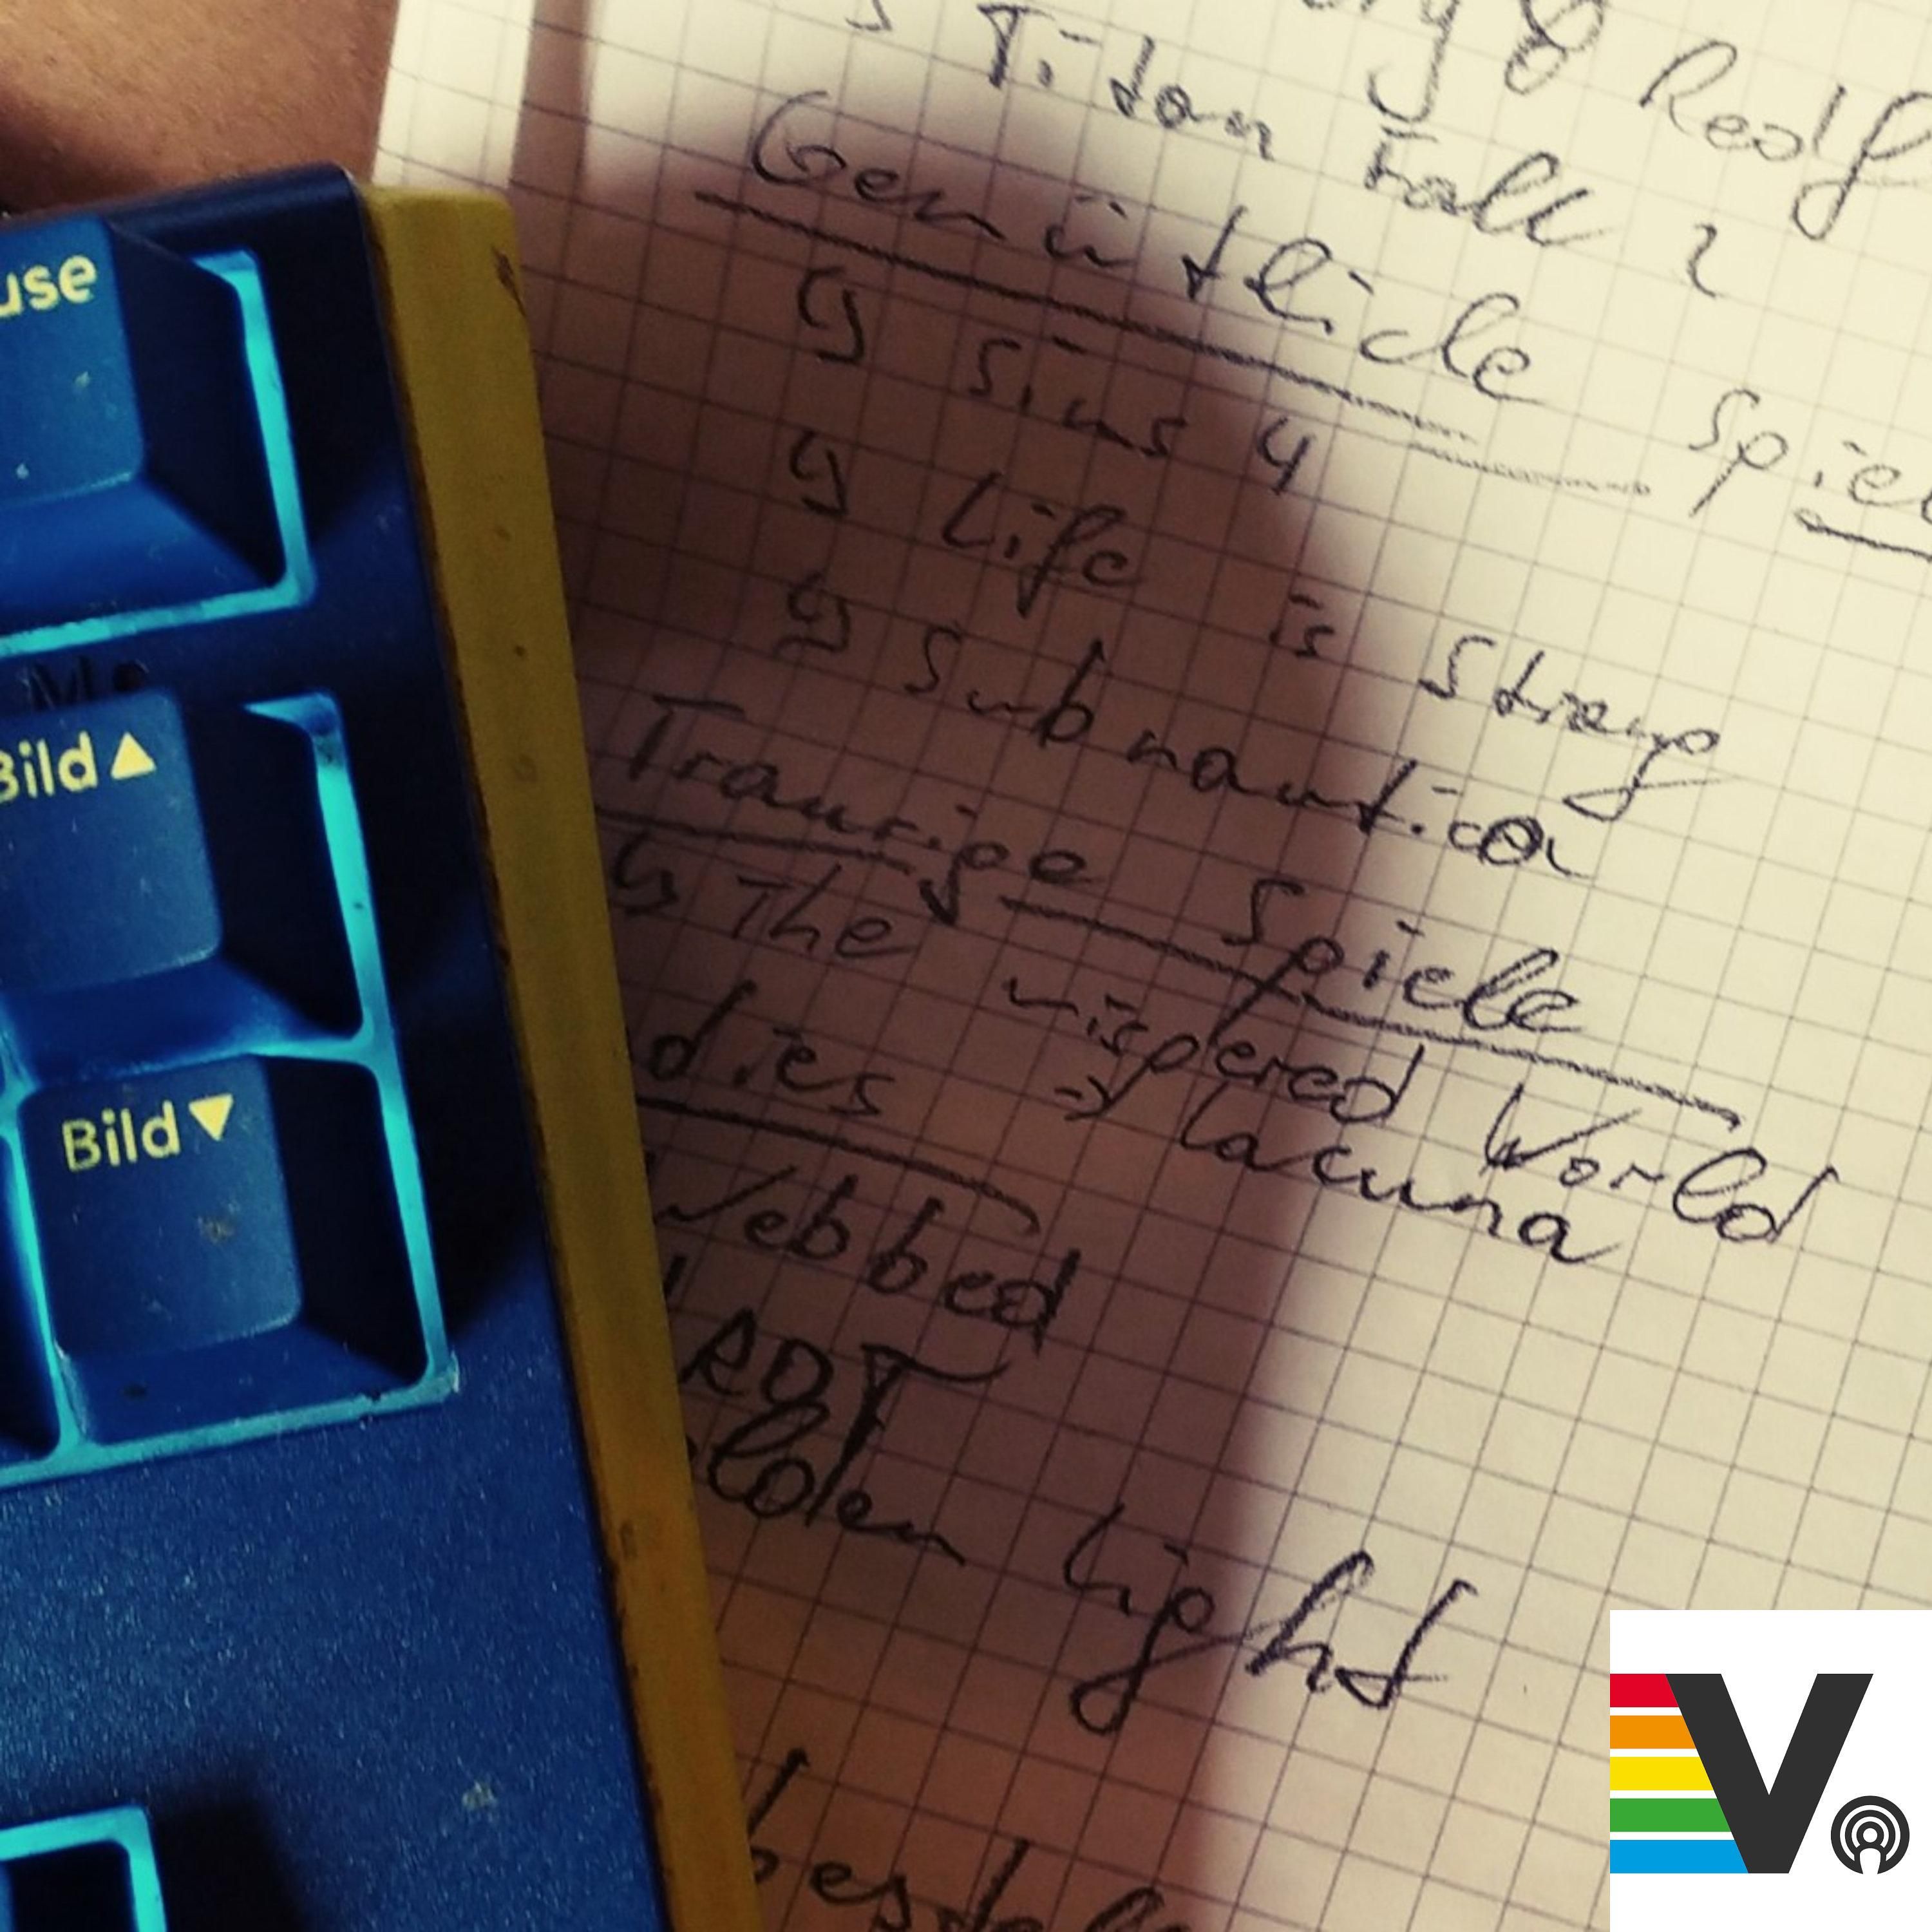 & Redf
Titan Fall 2
Gemütliche Spiel
↳ Sims 4
↳ Life is Strange
↳ Subnautica
Traurige Spiele
↳ The wispered World
→ Lacuna
dies
Webbed
ROT
olden Light
bestel
use
Bild▲
Bild▼
V.